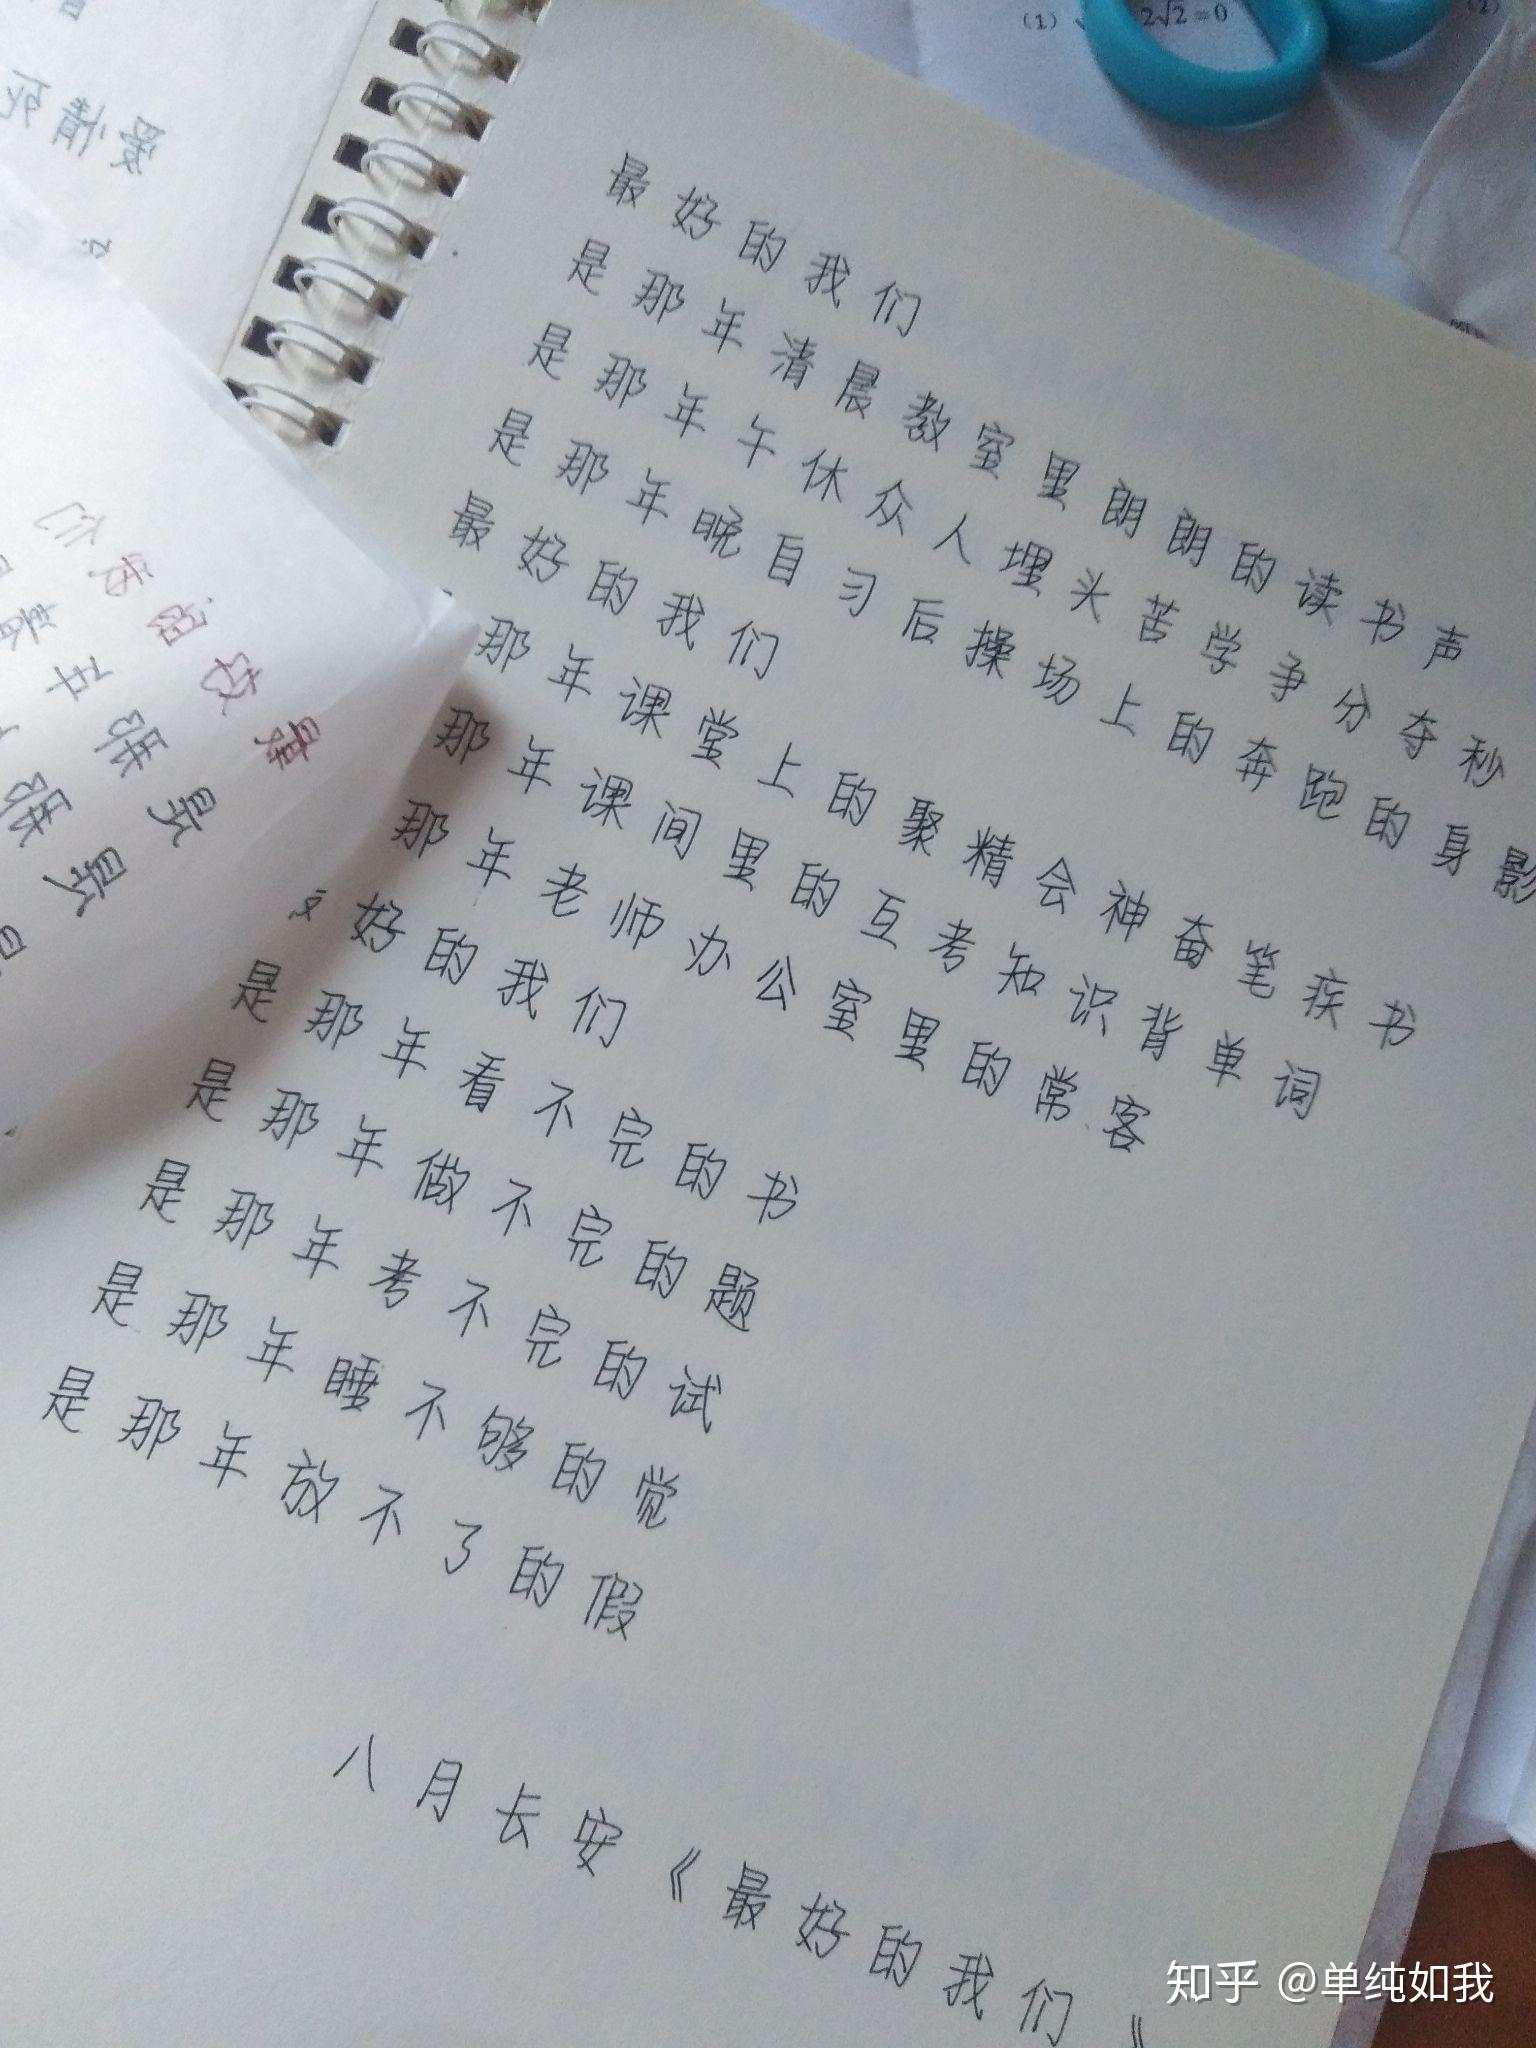 最好的我们
是那年清晨教室里朗朗的读书声
是那年午休众人埋头苦学争分夺秒
是那年晚自习后操场上的奔跑的身影
最好的我们
那年课堂上的聚精会神奋笔疾书
那年课间里的互考知识背单词
那年老师办公室里的常客
好的我们
是那年看不完的书
是那年做不完的题
是那年考不完的试
是那年睡不够的觉
是那年放不了的假
八月长安《最好的我们》
(1)
2√2=0
(2)
爱情
知乎 @单纯如我